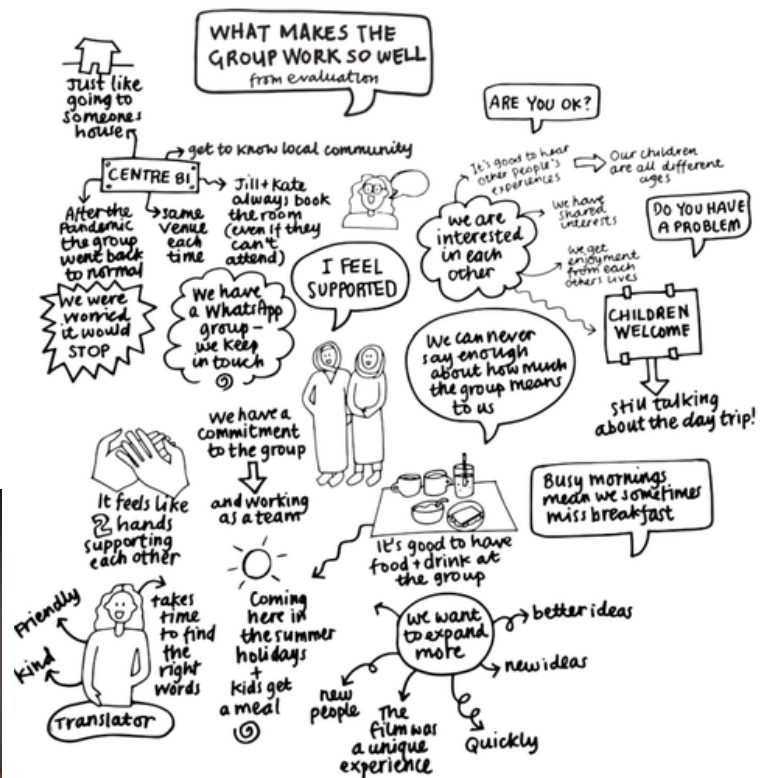 WHAT MAKES THE
GROUP WORK SO WELL
from evaluation
Just like
going to
someones
house
CENTRE 81
get to know local community
After the
Pandemic
the group
went back
to normal
same
venue
each
time
Jill + Kate
always book
the room
(even if they
can't
attend)
We were
worried
it would
STOP
We have
a WhatsApp
group –
we keep
in touch
I FEEL
SUPPORTED
ARE YOU OK?
It's good to hear
other people's
experiences
Our children
are all different
ages
we are
interested
in each
other
We have
shared
interests
we get
enjoyment
from each
others lives
DO YOU HAVE
A PROBLEM
CHILDREN
WELCOME
still talking
about the day trip!
We can never
say enough
about how much
the group means
to us
We have a
commitment
to the group
and working
as a team
It feels like
2 hands
supporting
each other
Busy mornings
mean we sometimes
miss breakfast
It's good to have
food + drink at
the group
Friendly
Kind
takes
time
to find
the
right
words
Translator
Coming
here in
the summer
holidays
+
kids get
a meal
we want
to expand
more
better ideas
new ideas
new
people
The
film was
a unique
experience
Quickly